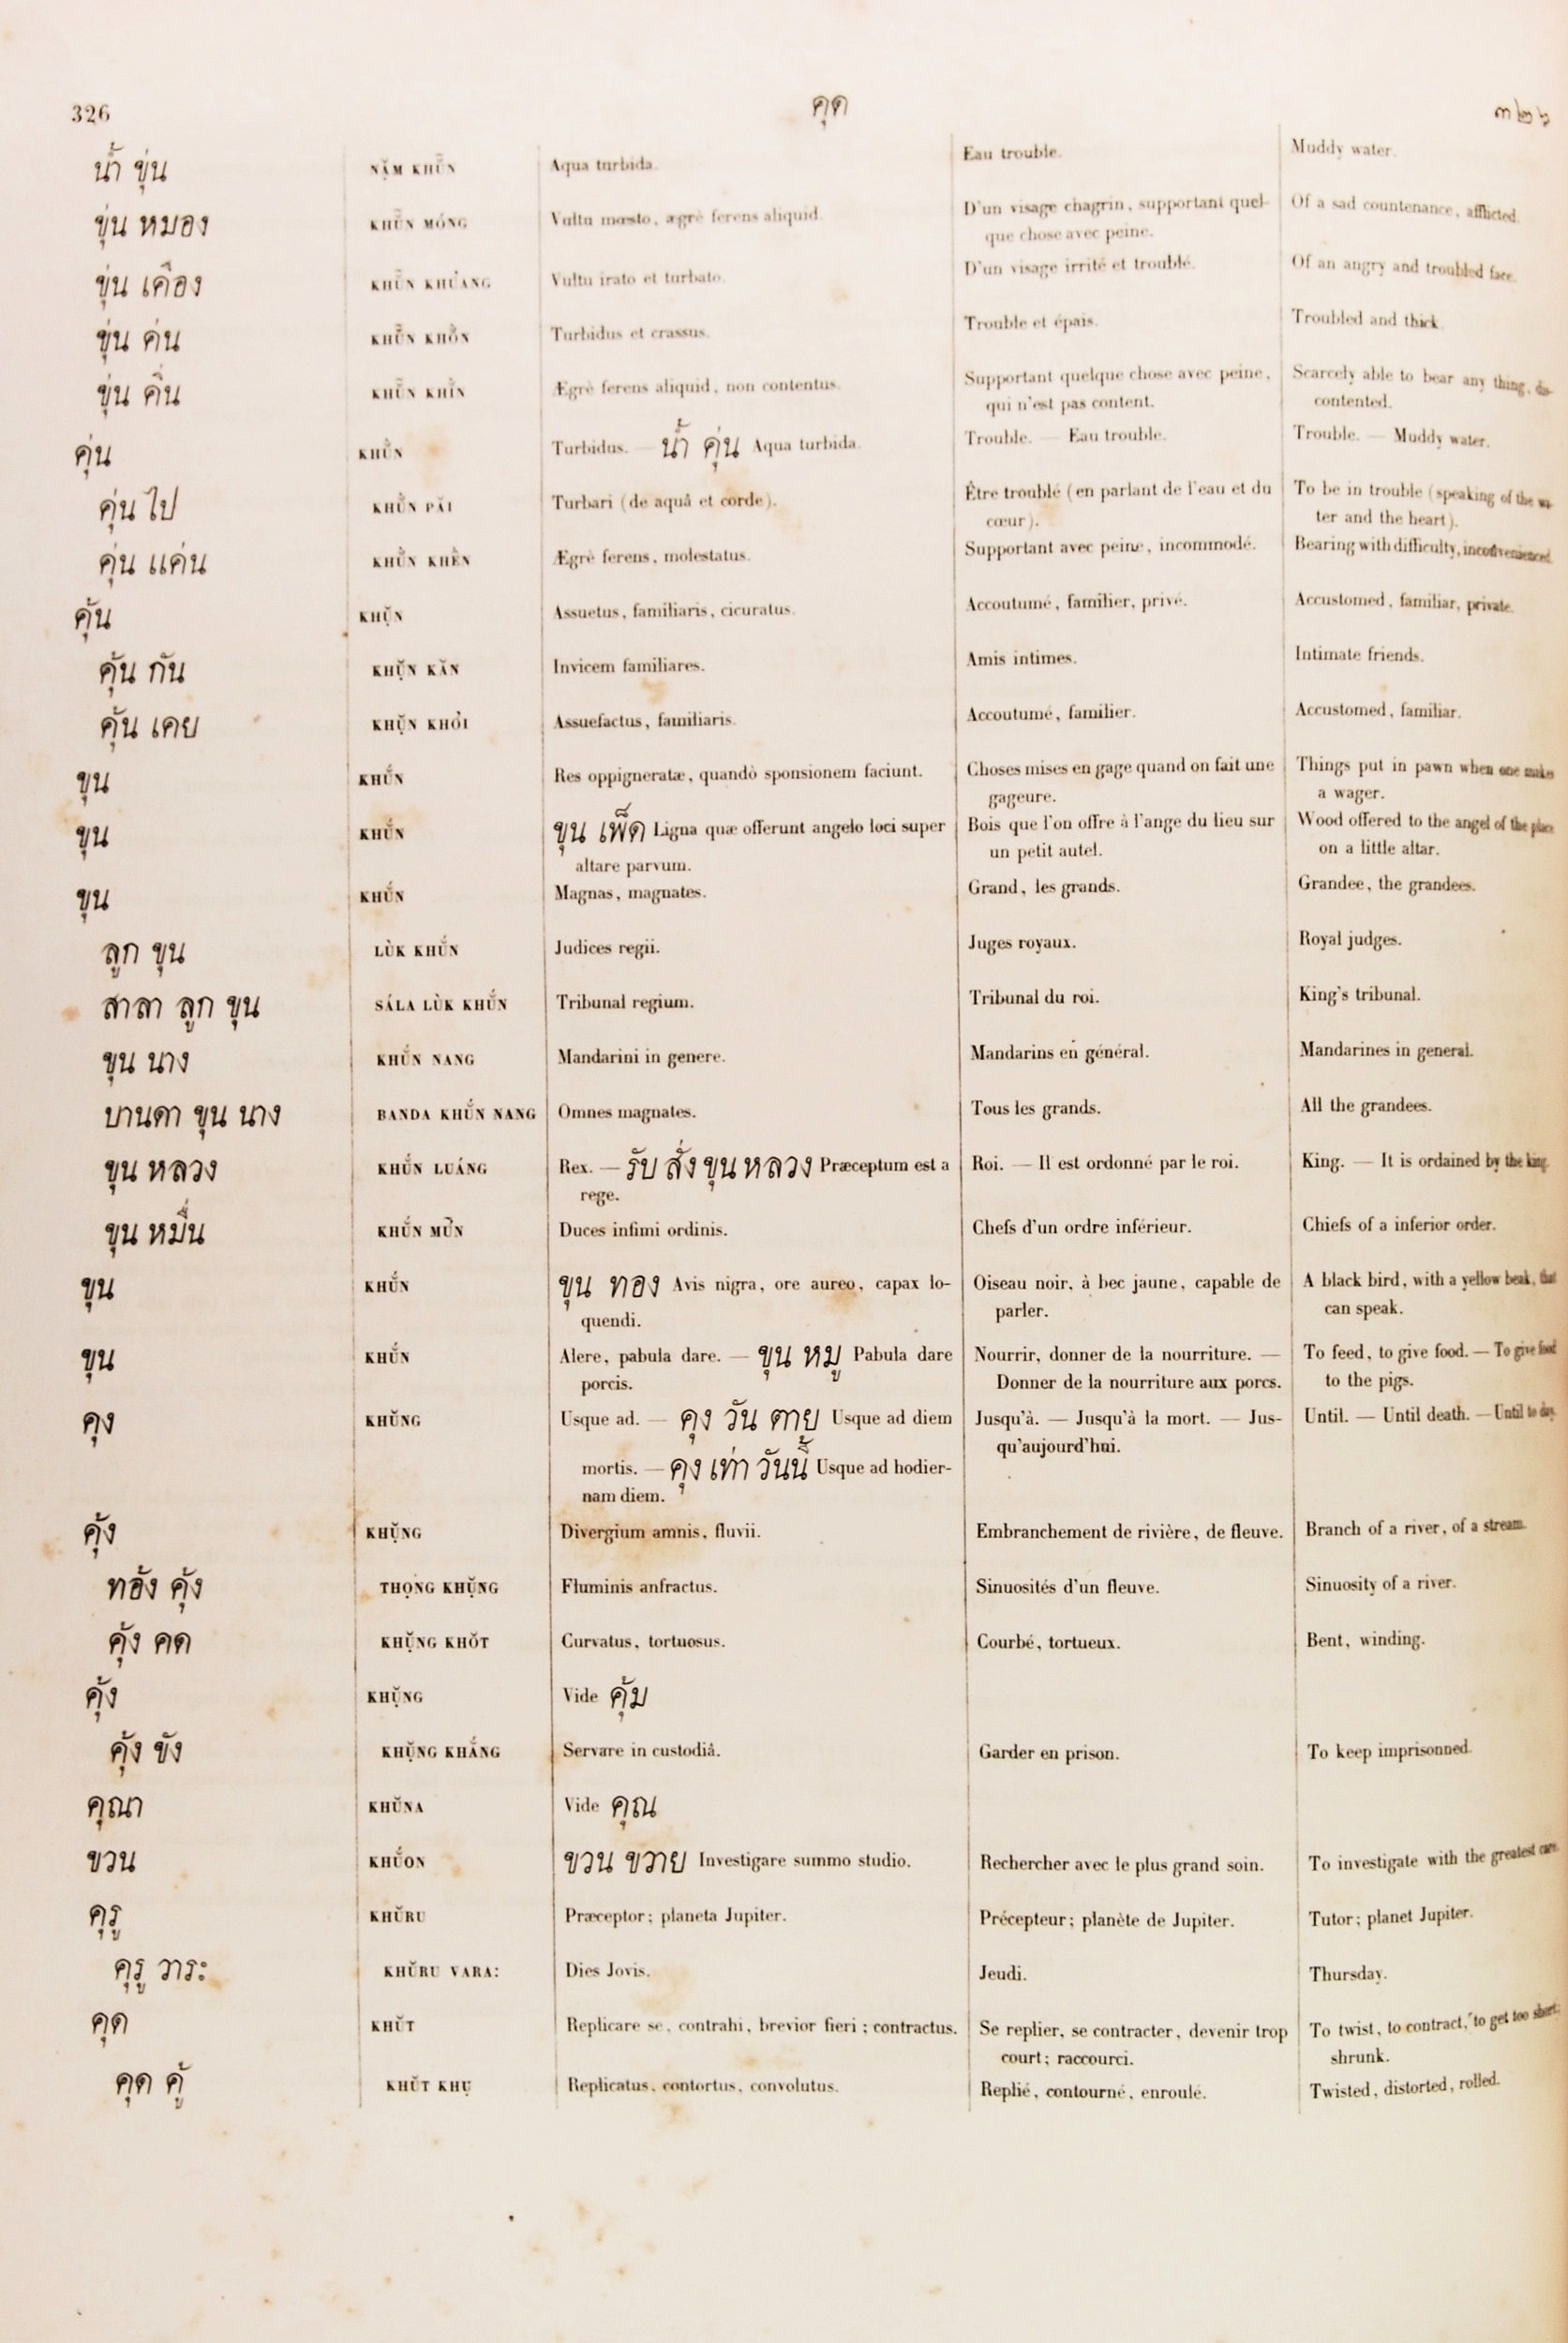 326 คุด ๓๒๖
น้ำ ขุ่น NẶM KHŬ̀N Aqua turbida. Eau trouble. Muddy water.
ขุ่น หมอง KHŬ̀N MÓNG Vultu mœsto, ægrè ferens aliquid. D'un visage chagrin, supportant quel- Of a sad countenance, afflicted.
que chose avec peine.
ขุ่น เคือง KHŬ̀N KHU̇ANG Vultu irato et turbato. D'un visage irrité et troublé. Of an angry and troubled face.
ขุ่น ค่น KHŬ̀N KHŎ̀N Turbidus et crassus. Trouble et épais. Troubled and thick.
ขุ่น คื่น KHŬ̀N KHĬ̀N Ægrè ferens aliquid, non contentus. Supportant quelque chose avec peine, Scarcely able to bear any thing, dis-
qui n'est pas content. contented.
คุ่น KHŬ̀N Turbidus. — น้ำ คุ่น Aqua turbida. Trouble. — Eau trouble. Trouble. — Muddy water.
คุ่น ไป KHŬ̀N PĂI Turbari (de aquâ et corde). Être troublé (en parlant de l'eau et du To be in trouble (speaking of the wa-
cœur). ter and the heart).
คุ่น แค่น KHŬ̀N KHÈN Ægrè ferens, molestatus. Supportant avec peine, incommodé. Bearing with difficulty, inconvenienced.
คุ้น KHỤ̆N Assuetus, familiaris, cicuratus. Accoutumé, familier, privé. Accustomed, familiar, private.
คุ้น กัน KHỤ̆N KĂN Invicem familiares. Amis intimes. Intimate friends.
คุ้น เคย KHỤ̆N KHO̊I Assuefactus, familiaris. Accoutumé, familier. Accustomed, familiar.
ขุน KHŬ́N Res oppigneratæ, quandò sponsionem faciunt. Choses mises en gage quand on fait une Things put in pawn when one makes
gageure. a wager.
ขุน KHŬ́N ขุน เพ็ด Ligna quæ offerunt angelo loci super Bois que l'on offre à l'ange du lieu sur Wood offered to the angel of the place
altare parvum. un petit autel. on a little altar.
ขุน KHŬ́N Magnas, magnates. Grand, les grands. Grandee, the grandees.
ลูก ขุน LÙK KHŬ́N Judices regii. Juges royaux. Royal judges.
สาลา ลูก ขุน SÁLA LÙK KHŬ́N Tribunal regium. Tribunal du roi. King's tribunal.
ขุน นาง KHŬ́N NANG Mandarini in genere. Mandarins en général. Mandarines in general.
บานดา ขุน นาง BANDA KHŬ́N NANG Omnes magnates. Tous les grands. All the grandees.
ขุน หลวง KHŬ́N LUÁNG Rex. — รับ สั่ง ขุน หลวง Præceptum est a Roi. — Il est ordonné par le roi. King. — It is ordained by the king.
rege.
ขุน หมื่น KHŬ́N MU̇̀N Duces infimi ordinis. Chefs d'un ordre inférieur. Chiefs of a inferior order.
ขุน KHŬ́N ขุน ทอง Avis nigra, ore aureo, capax lo- Oiseau noir, à bec jaune, capable de A black bird, with a yellow beak, that
quendi. parler. can speak.
ขุน KHŬ́N Alere, pabula dare. — ขุน หมู Pabula dare Nourrir, donner de la nourriture. — To feed, to give food. — To give food
porcis. Donner de la nourriture aux porcs. to the pigs.
คุง KHŬNG Usque ad. — คุง วัน ตาย Usque ad diem Jusqu'à. — Jusqu'à la mort. — Jus- Until. — Until death. — Until to day.
mortis. — คุง เท่า วันนี้ Usque ad hodier- qu'aujourd'hui.
nam diem.
คุ้ง KHỤ̆NG Divergium amnis, fluvii. Embranchement de rivière, de fleuve. Branch of a river, of a stream.
ทอ้ง คุ้ง THỌNG KHỤ̆NG Fluminis anfractus. Sinuosités d'un fleuve. Sinuosity of a river.
คุ้ง คด KHỤ̆NG KHŎT Curvatus, tortuosus. Courbé, tortueux. Bent, winding.
คุ้ง KHỤ̆NG Vide คุ้ม
คุ้ง ขัง KHỤ̆NG KHẮNG Servare in custodiâ. Garder en prison. To keep imprisonned.
คุณา KHŬNA Vide คุณ
ขวน KHŬ́ON ขวน ขวาย Investigare summo studio. Rechercher avec le plus grand soin. To investigate with the greatest care.
คุรู KHŬRU Præceptor; planeta Jupiter. Précepteur; planète de Jupiter. Tutor; planet Jupiter.
คุรู วาระ KHŬRU VARA: Dies Jovis. Jeudi. Thursday.
คุด KHŬT Replicare se, contrahi, brevior fieri; contractus. Se replier, se contracter, devenir trop To twist, to contract, to get too short;
court; raccourci. shrunk.
คุด คู้ KHŬT KHỤ Replicatus, contortus, convolutus. Replié, contourné, enroulé. Twisted, distorted, rolled.